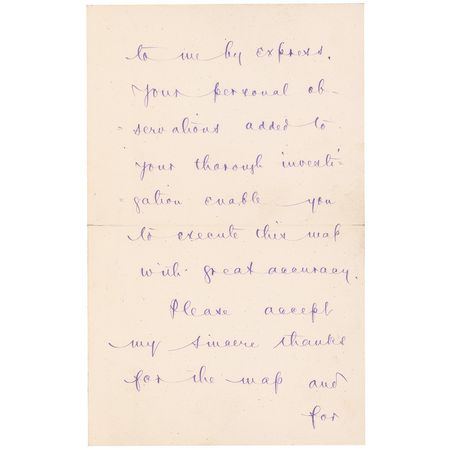 to me by express.
Your personal ob-
servations added to
your thorough investi-
gation enable you
to execute this map
with great accuracy.
Please accept
my sincere thanks
for the map and
for